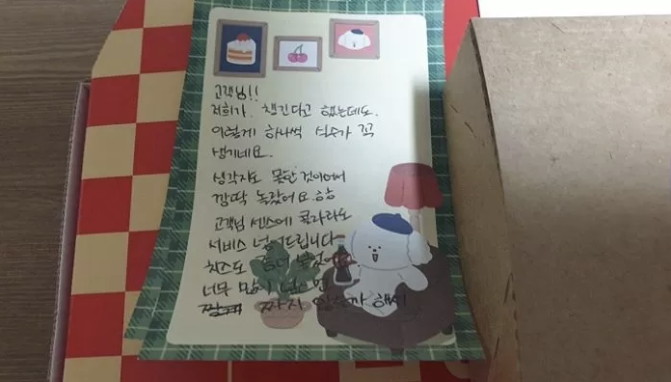 고객님!!
저희가 챙긴다고 했는데도
이렇게 하나씩 실수가 꼭
생기네요.
생각지도 못한 것이어서
깜짝 놀랐어요
고객님 센스에 콜라라도
서비스 넣어드립니다
치즈도 좀 더
너무 많이 넣으면
짜지 않을까 해서